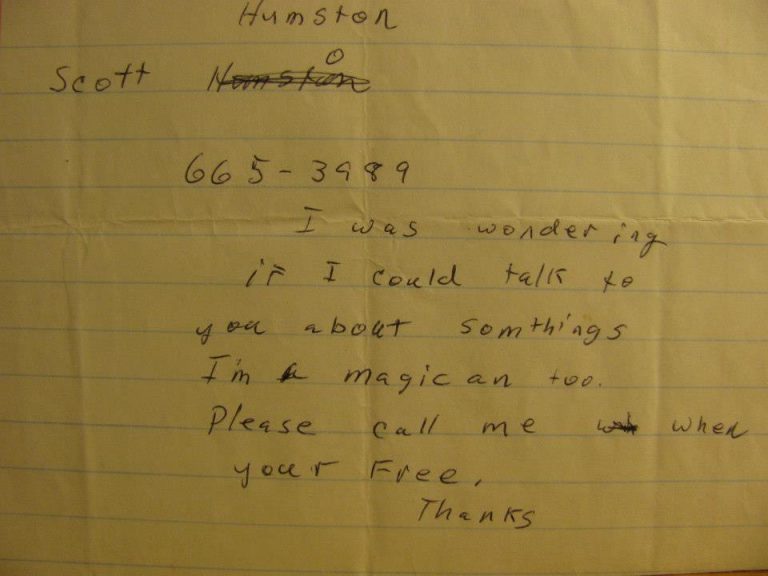 Humston
Scott Humston
665-3989
I was wondering
if I could talk to
you about somthings
I'm a magic an too.
Please call me when
your Free.
Thanks